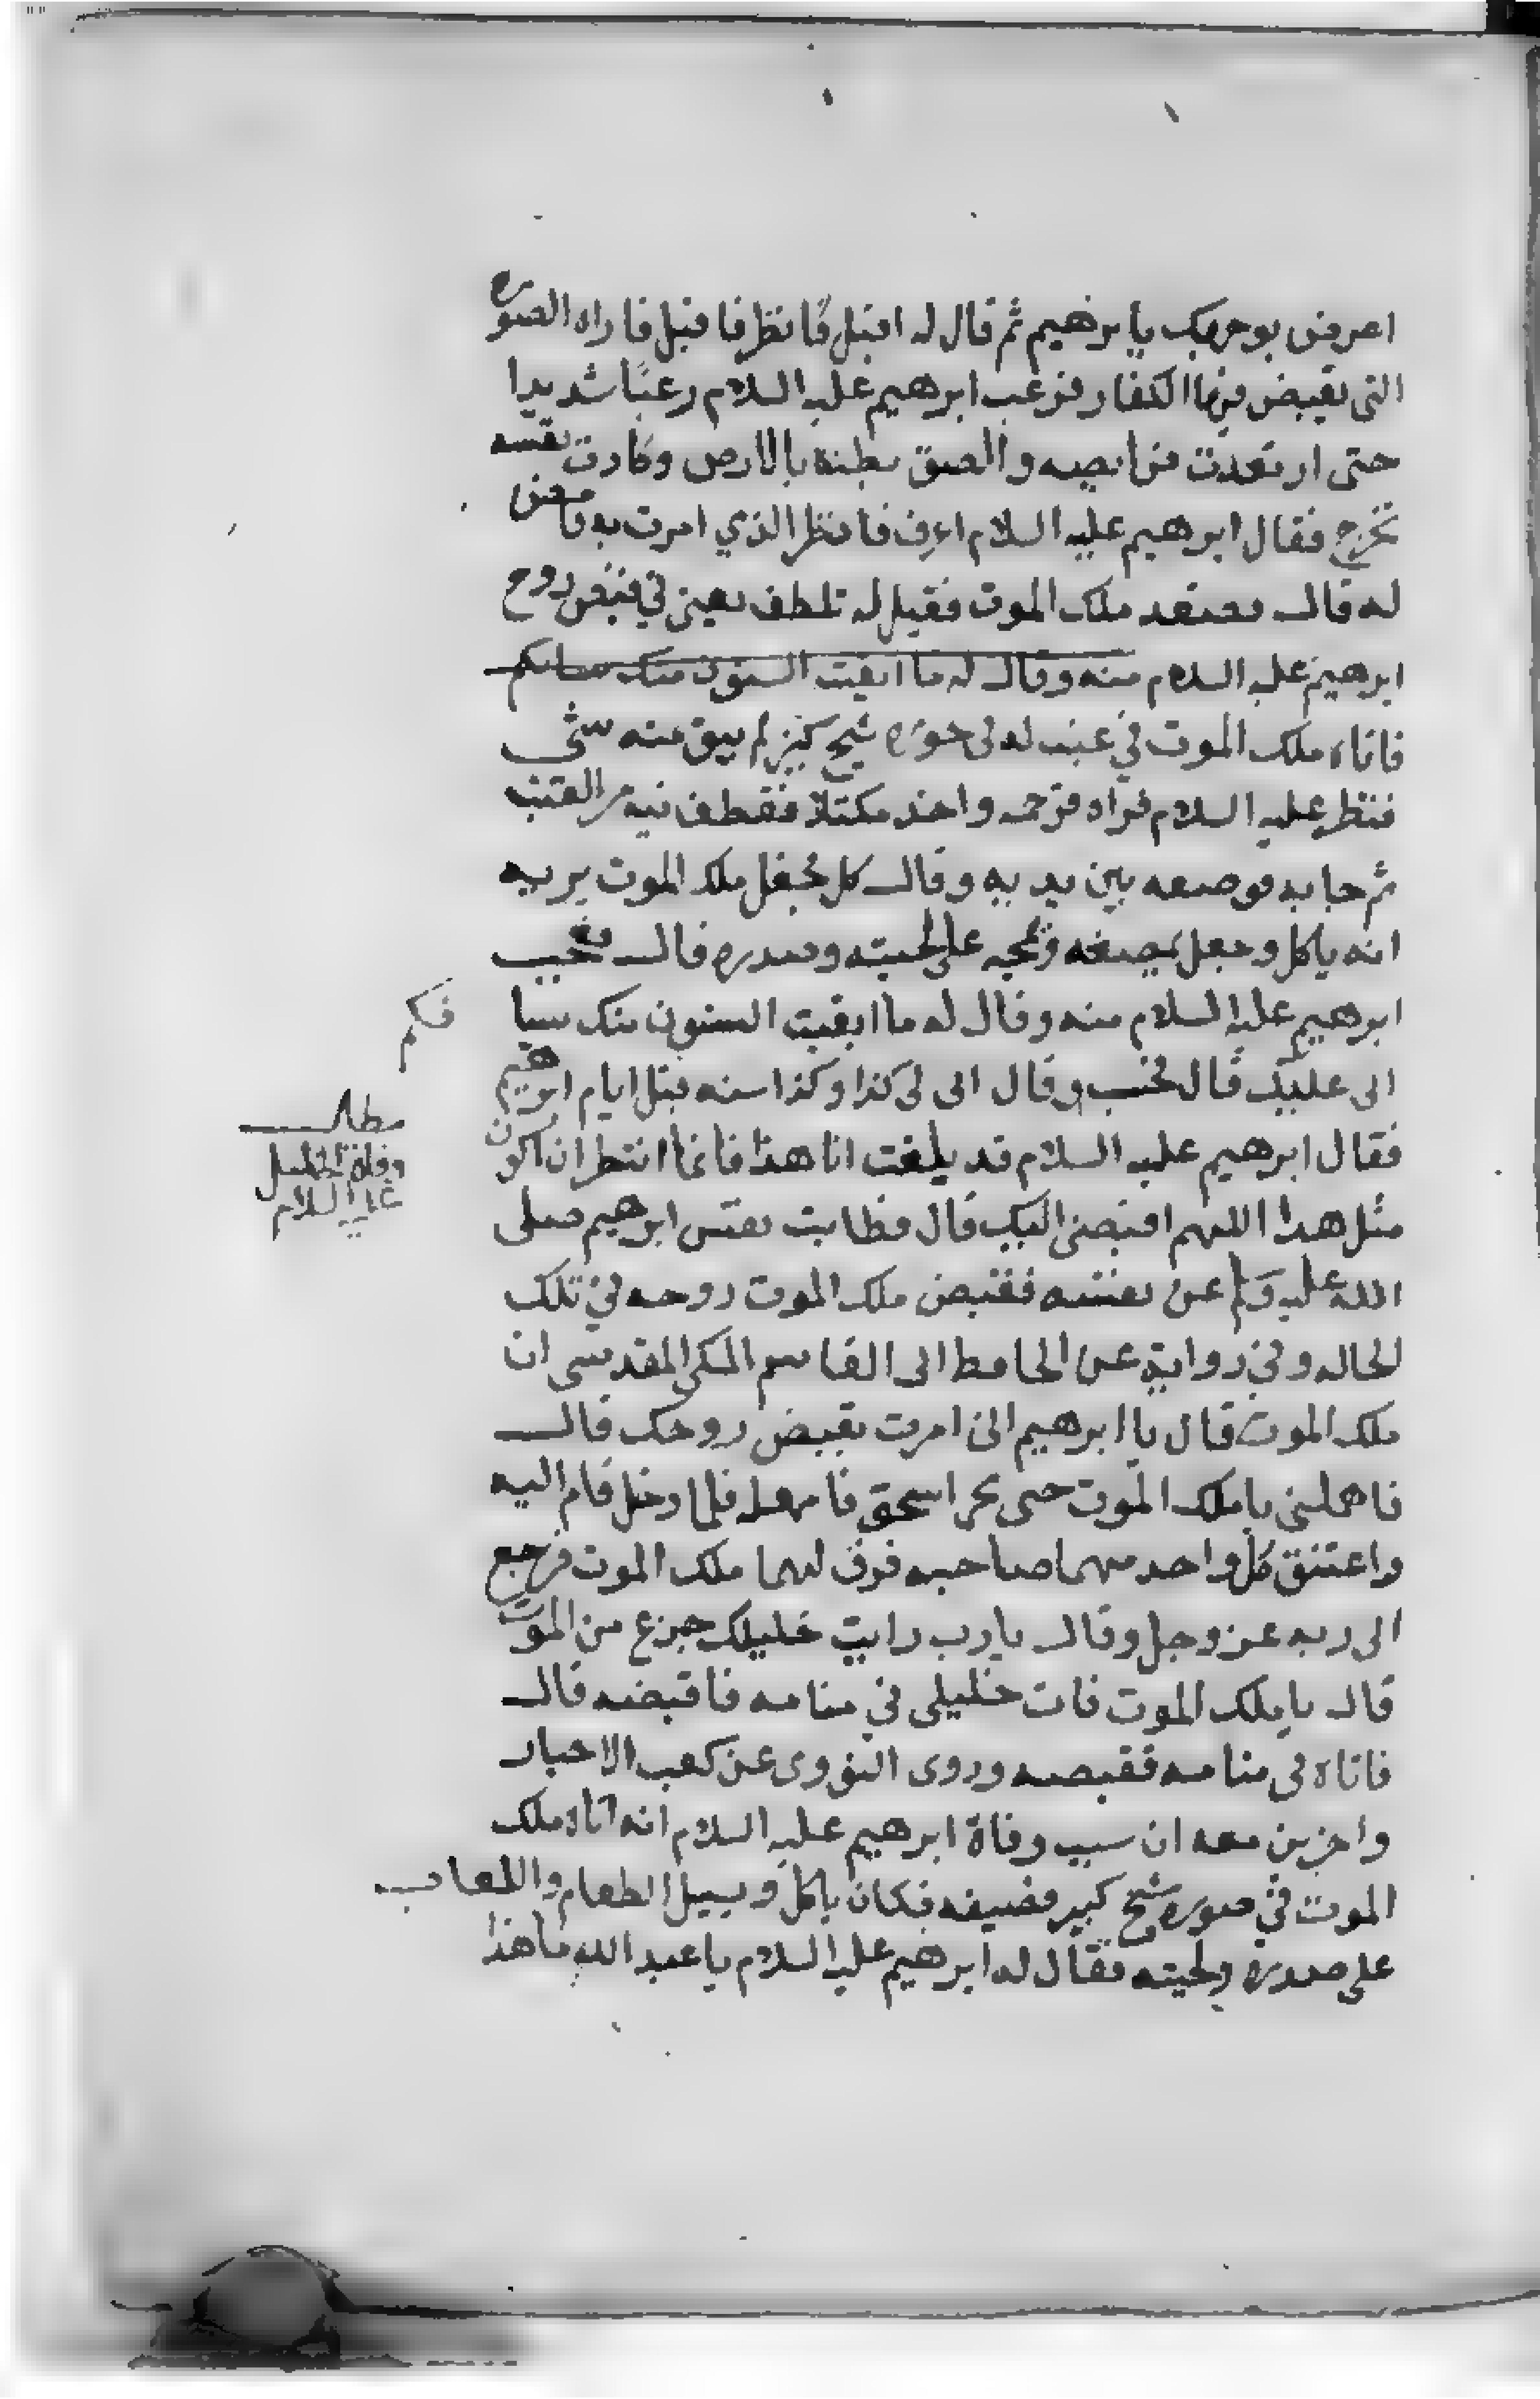 اعرض بوجهك يا برهيم ثم قال له اقبل فانظر فاقبل فاراه الصوره
التى يقبض فيها الكفار فرعب ابرهيم عليه السلام رعبًا شديدا
حتى ارتعدت فرايصه والصق بطنه بالارض وكادت نفسه
تخرج فقال ابرهيم عليه السلام اعرف فانظر الذي امرت به فامض
له قال فصعد ملك الموت فقيل له تلطف يعني في قبض روح
ابرهيم عليه السلام منه وقال له ما ابقت السنون منك
فاتاه ملك الموت في عنب له فى صوره شيخ كبير لم يبق منه شى
فنظر عليه السلام فراه فرحمه واخذ مكتلا فقطف فيه من العنب
ثم جا به فوضعه بين يديه وقال كل فجعل ملك الموت يريه
انه ياكل وجعل يمضغه ويمجه على لحيته وصدره قال فعجب
ابرهيم عليه السلام منه وقال له ما ابقت السنون منك شيا فكم
اتى عليك قال فحسب وقال اتى لى كذا وكذا سنه مثل ايام ابرهيم
فقال ابرهيم عليه السلام قد بلغت انا هذا فانما انتظر ان اكون
مثل هذا اللهم اقبضنى اليك قال فطابت نفس ابرهيم صلى
الله عليه وسلم عن نفسه فقبض ملك الموت روحه في تلك
الحاله وفي رواية عن الحافظ ابى القاسم المكى المقدسى ان
ملك الموت قال يا ابرهيم انى امرت بقبض روحك قال
فامهلني يا ملك الموت حتى اسحق فامهله فلما دخل قام اليه
واعتنق كل واحد منهما صاحبه فرق لهما ملك الموت فرجع
الى ربه عز وجل وقال يا رب رايت خليلك جزع من الموت
قال يا ملك الموت فات خليلى في منامه فاقبضه قال
فاتاه في منامه فقبضه وروى النووى عن كعب الاحبار
واخرين معه ان سبب وفاة ابرهيم عليه السلام انه اتاه ملك
الموت في صوره شيخ كبير فضيفه فكان ياكل ويسيل الطعام واللعاب
على صدره ولحيته فقال له ابرهيم عليه السلام يا عبد الله ما هذا
مطلب
وفاة الخليل
عليه السلام